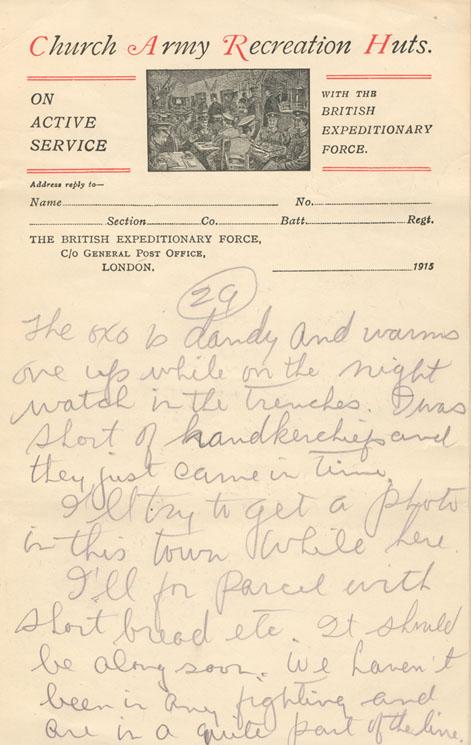 Church Army Recreation Huts.
ON
ACTIVE
SERVICE
WITH THE
BRITISH
EXPEDITIONARY
FORCE.
Address reply to—
Name No.
Section Co. Batt. Regt.
THE BRITISH EXPEDITIONARY FORCE,
C/O GENERAL POST OFFICE,
LONDON.
1915
29
The oxo is dandy and warms
one up while on the night
watch in the trenches. I was
short of handkerchiefs and
they just came in time.
I'll try to get a photo
in this town while here.
I'll for parcel with
short bread etc. It should
be along soon. We haven't
been in any fighting and
are in a quite part of the line.